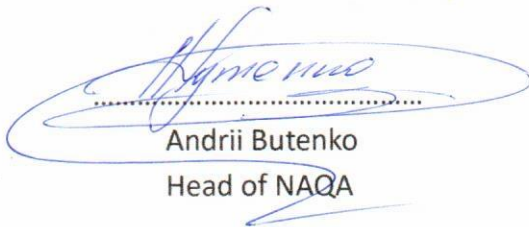 Andrii Butenko
Head of NAQA